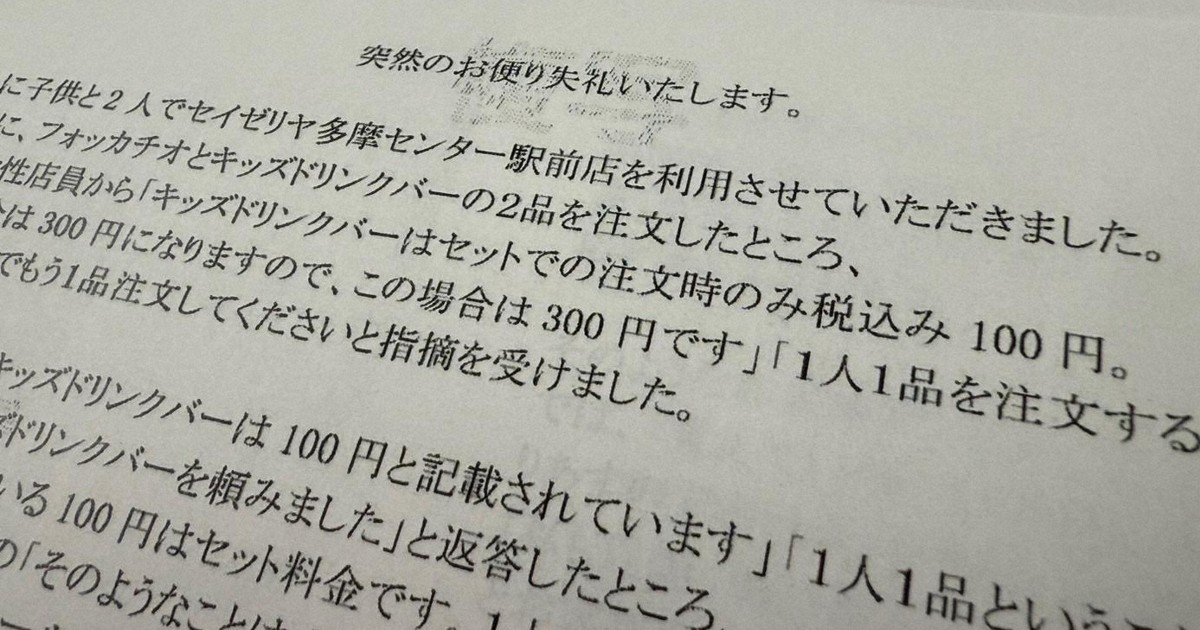 突然のお便り失礼いたします。
に子供と2人でセイゼリヤ多摩センター駅前店を利用させていただきました。
に、フォッカチオとキッズドリンクバーの2品を注文したところ、
性店員から「キッズドリンクバーはセットでの注文時のみ税込み100円。
は300円になりますので、この場合は300円です」「1人1品を注文する
でもう1品注文してくださいと指摘を受けました。
キッズドリンクバーは100円と記載されています」「1人1品という
ドリンクバーを頼みました」と返答したところ、
いる100円はセット料金です。1
の「そのようなことは